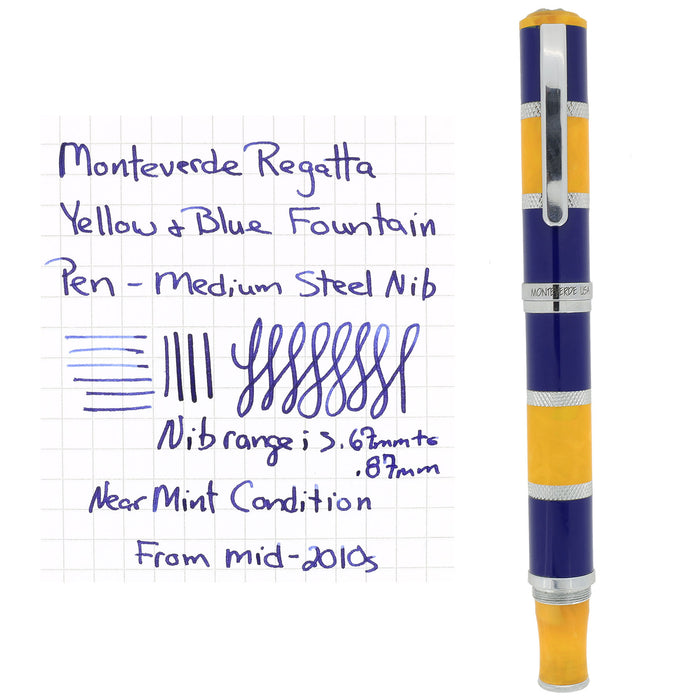 Monteverde Regatta
Yellow & Blue Fountain
Pen - Medium Steel Nib
Nib range is .67mm to
.87mm
Near Mint Condition
From mid-2010s
MONTEVERDE USA